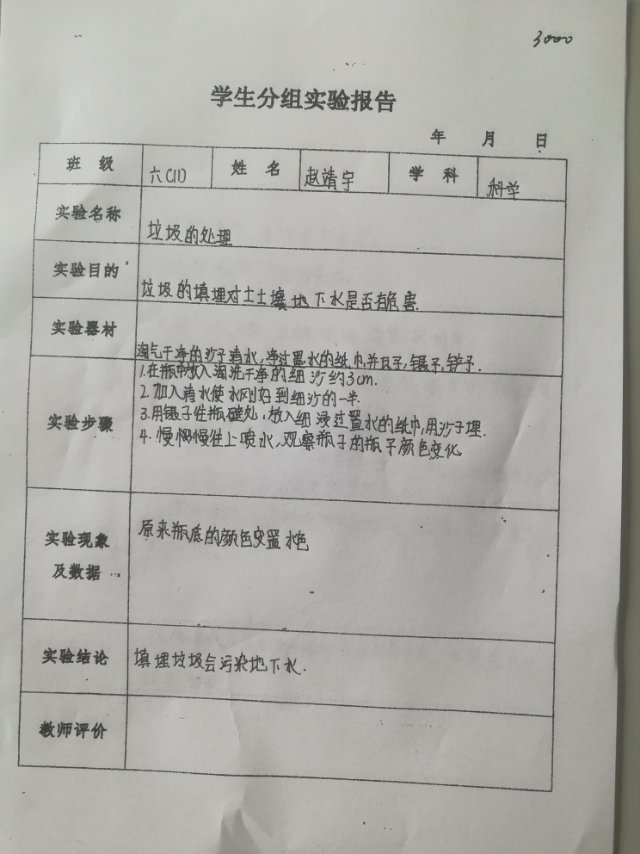 3000
学生分组实验报告
年 月 日
班 级 六(11) 姓 名 赵靖宇 学 科 科学
实验名称 垃圾的处理
实验目的 垃圾的填埋对土土壤地下水是否有危害.
实验器材 淘气干净的沙子清水,净过置水的纸巾,并瓦子,镊子,铲子.
实验步骤
1.在瓶中放入淘洗干净的细沙约3cm.
2.加入清水使水刚好到细沙的一半.
3.用镊子在瓶壁处,放入细浸过置水的纸巾,用沙子埋.
4.慢慢慢往上喷水,观察瓶子的瓶子颜色变化
实验现象
及数据
原来瓶底的颜色变置水色
实验结论 填埋垃圾会污染地下水.
教师评价